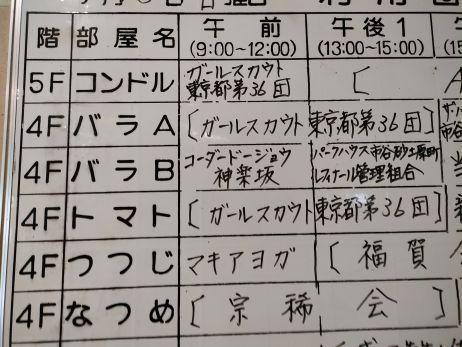 階 部屋名 午前 (9:00~12:00) 午後1 (13:00~15:00)
5F コンドル ガールスカウト 東京都第36団 [
4F バラA [ガールスカウト 東京都第36団]
4F バラB コーダードージョウ 神楽坂 パークハウス市谷砂土原町 管理組合
4F トマト [ガールスカウト 東京都第36団]
4F つつじ マキアヨガ [福賀
4F なつめ [宗稀会]